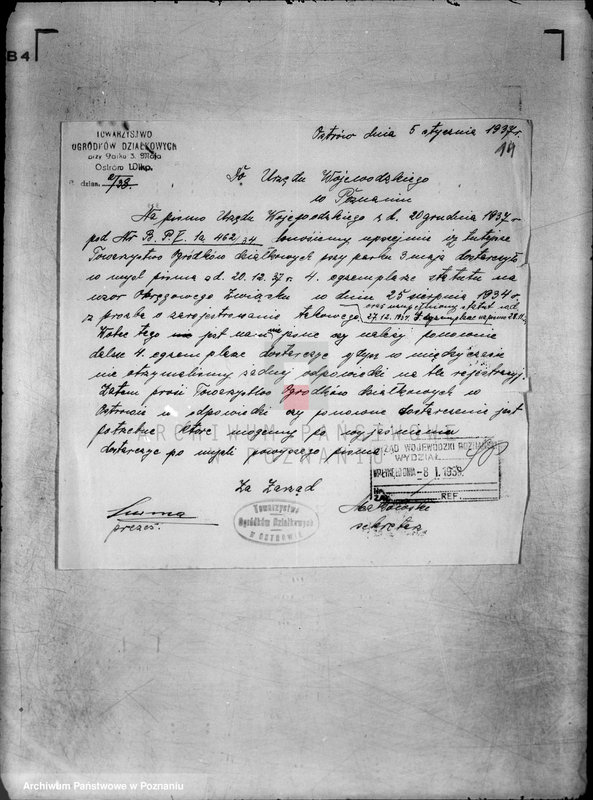 B4
TOWARZYSTWO
OGRÓDKÓW DZIAŁKOWYCH
przy Parku 3. Maja
Ostrów Wlkp.
L. dzien. 2/38.
Ostrów dnia 5 stycznia 1937r.
14
To Urzędu Wojewodzkiego
w Poznaniu
Na pismo Urzędu Wojewodzkiego z d. 20 grudnia 1937 r
pod Nr B.P.I. 1a, 462/34 donosimy uprzejmie iz tutejsze
Towarzystwo Ogródków działkowych przy parku 3. maja dostarczyło
w mysl pisma od 20.12.37 r. 4. egzemplaże statutu na
wzor Okręgowego Związku w dniu 25 sierpnia 1934 r.
z prosbą o zarejestrowanie takowego 27.12.1934.
Wobec tego jest nam nie pene czy należy ponownie
dalsze 4. egzemplaze dostarczyc gdyz w międzyczasie
nie otrzymalismy zadnej odpowiedzi na tle rejestracyj.
Zatem prosi Towarzystwo Ogrodków działkowych w
Ostrowie o odpowiedzi czy ponowne dostarczenie jest
potrzebne ktore mogemy po wyjasnieniu
dostarczyc po mysli powyzszego pisma
ARCHIWUM PAŃSTWOWE
W POZNANIU
URZĄD WOJEWÓDZKI POZNAŃSKI
WYDZIAŁ
WPŁYNĘŁO DNIA - 8 I. 1938
No
ZAŁ. REF.
Za Zarząd
prezes.
Towarzystwo
Ogródków Działkowych
w OSTROWIE
Makowski
sekretarz
Archiwum Państwowe w Poznaniu